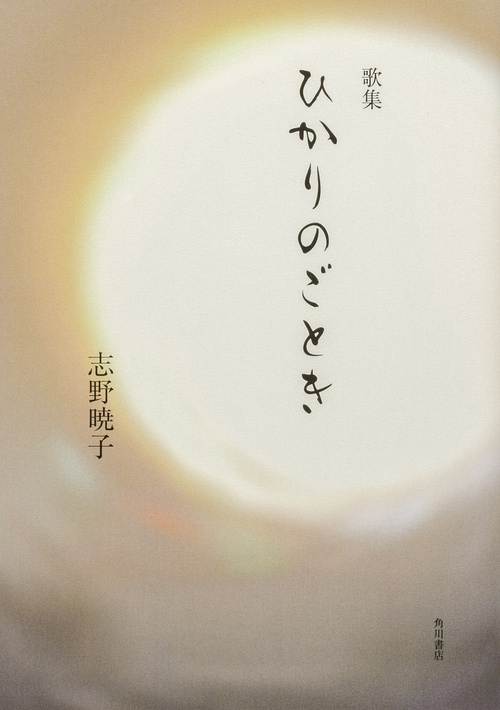 歌集
ひかりのごとき
志野暁子
角川書店